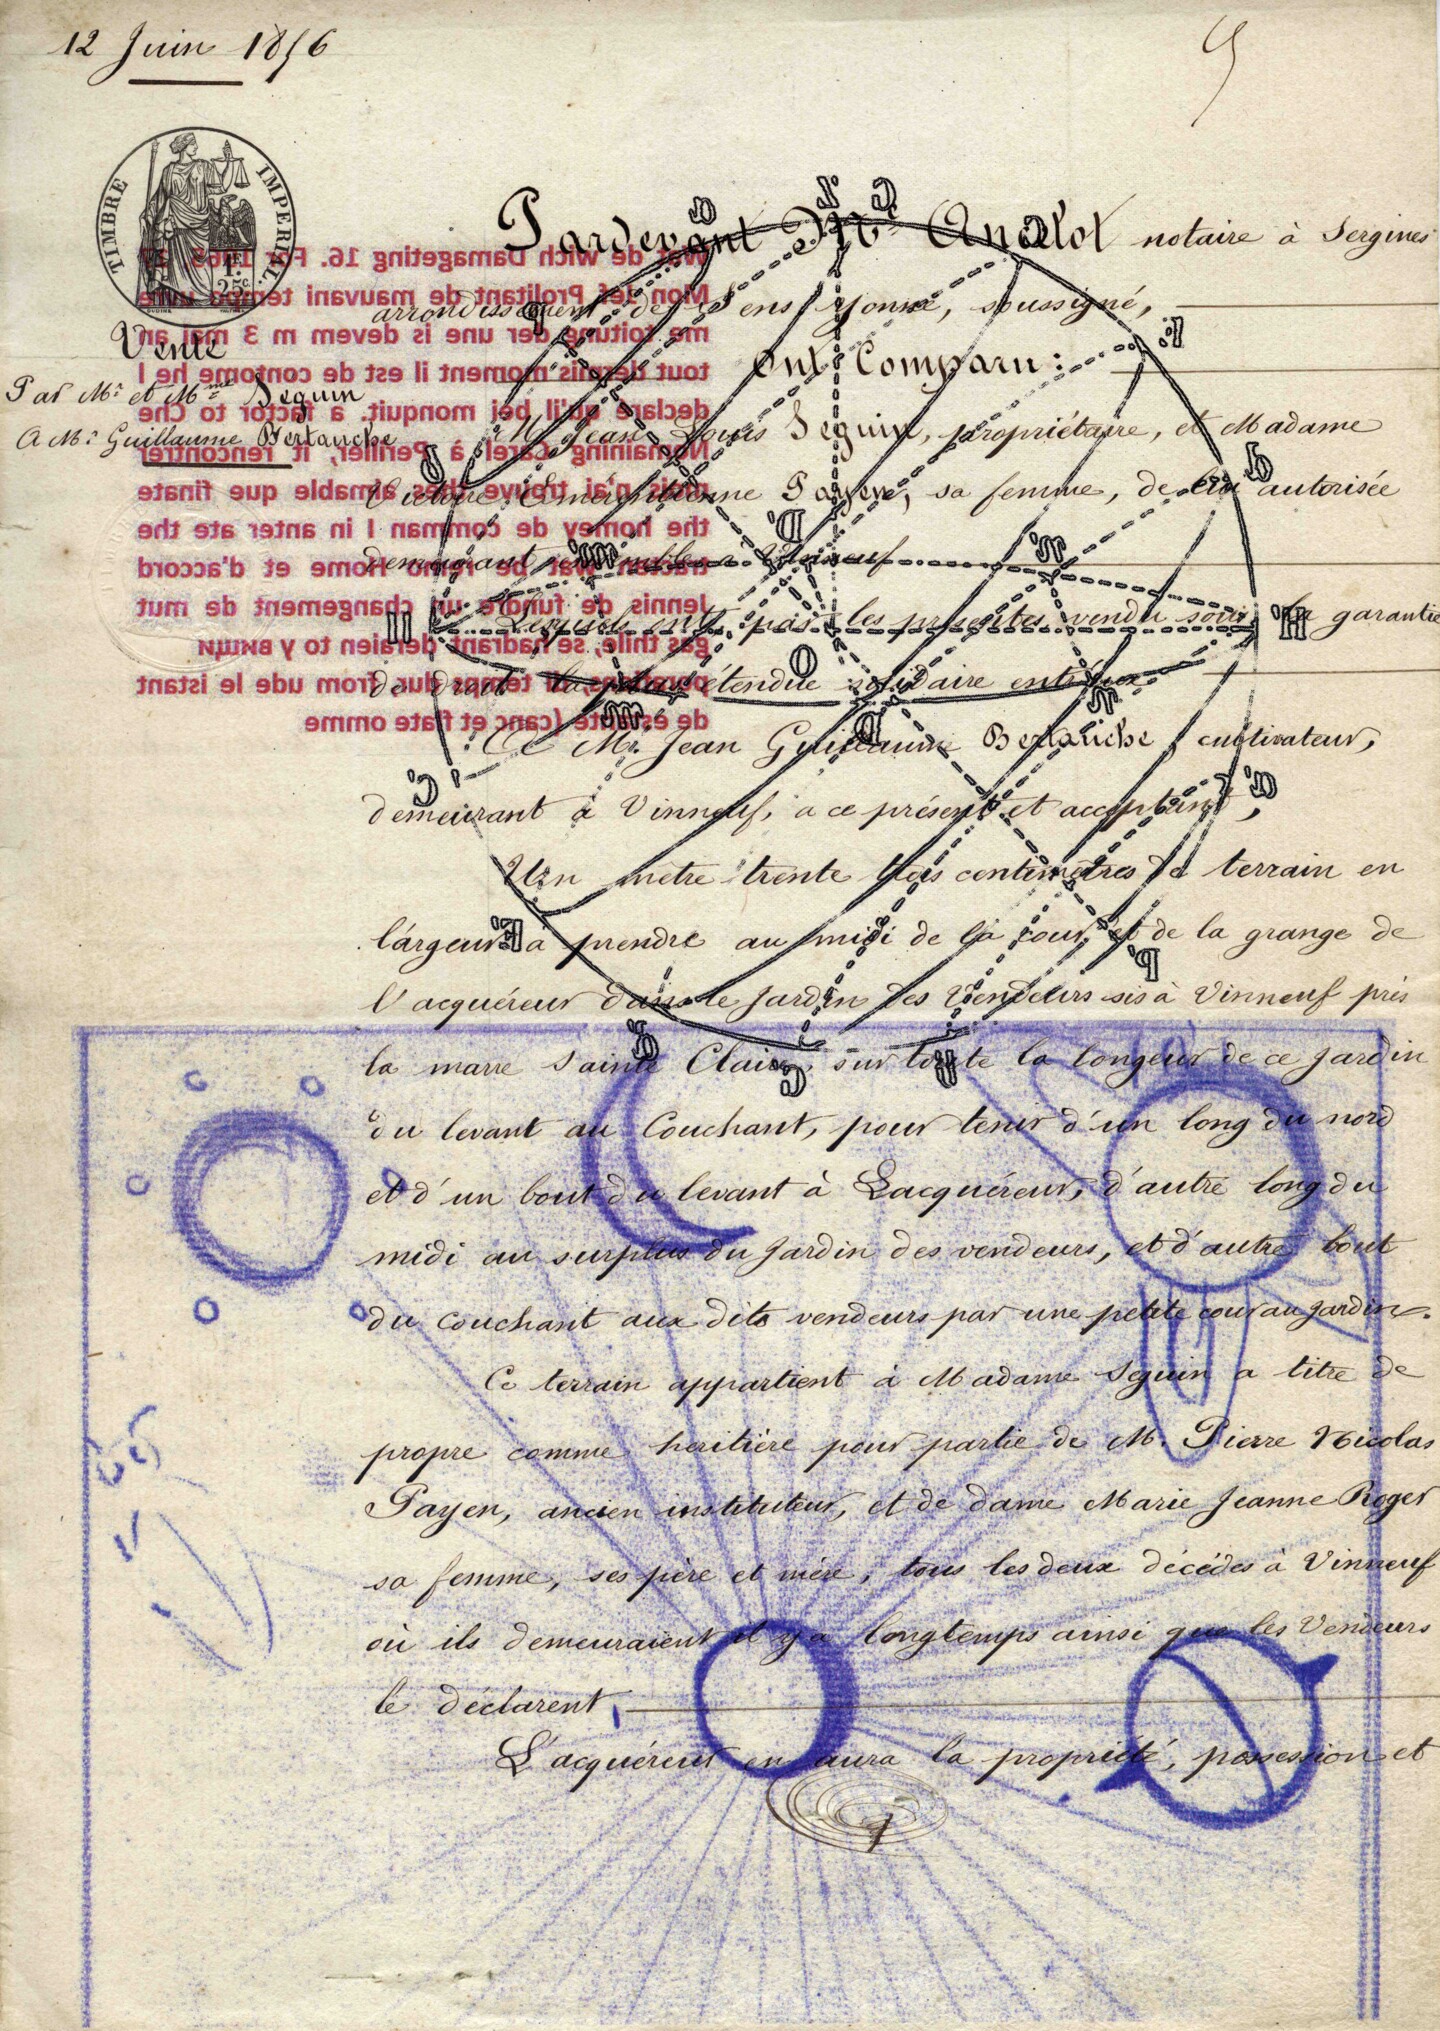 12 Juin 1856
TIMBRE IMPERIAL
Vente
Par Mr. et Mme. Seguin
A Mr. Guillaume Bertauche
Pardevant Me. Ancelot notaire à Sergines
arrondissement de Sens Yonne, soussigné,
Ont Comparu:
M. Jean Louis Seguin, propriétaire, et Madame
Victoire Payen, sa femme, de lui autorisée
demeurant ensemble à Vinneuf
Lesquels ont par les présentes vendu sous la garantie
de droit la plus étendue solidaire entre eux
A Mr. Jean Guillaume Bertauche, cultivateur,
demeurant à Vinneuf, a ce présent et acceptant,
Un mètre trente trois centimètres de terrain en
largeur à prendre au midi de la cour et de la grange de
l'acquéreur dans le jardin des Vendeurs sis à Vinneuf près
la marre Sainte Claire, sur toute la longeur de ce jardin
du levant au Couchant, pour tenir d'un long du nord
et d'un bout du levant à Lacquéreur, d'autre long du
midi au surplus du jardin des vendeurs, et d'autre bout
du couchant aux dits vendeurs par une petite cour au jardin.
Ce terrain appartient à Madame Seguin a titre de
propre comme heritière pour partie de M. Pierre Nicolas
Payen, ancien instituteur, et de dame Marie Jeanne Roger
sa femme, ses père et mère, tous les deux décédés à Vinneuf
où ils demeuraient il y a longtemps ainsi que les Vendeurs
le déclarent,
L'acquéreur en aura la propriété, possession et
wat de wich Damageting 16. For
Mon Jef Prolitant de mauvani temps
me toitune der une is devem m 3 mai an
tout depuis moment il est de contome he I
declare qu'il bei monquit. a factor to Che
Nomaining Carel à Perilier, it rencontrer
mais n'ai trouve tres aimable que finate
the homey de comman I in anter ate the
Home et d'accord
Jennis de fundre un changement de mut
gas thile, se hadrant deraien to y вищи
temps dur from ude le istant
de (canc et flate omme